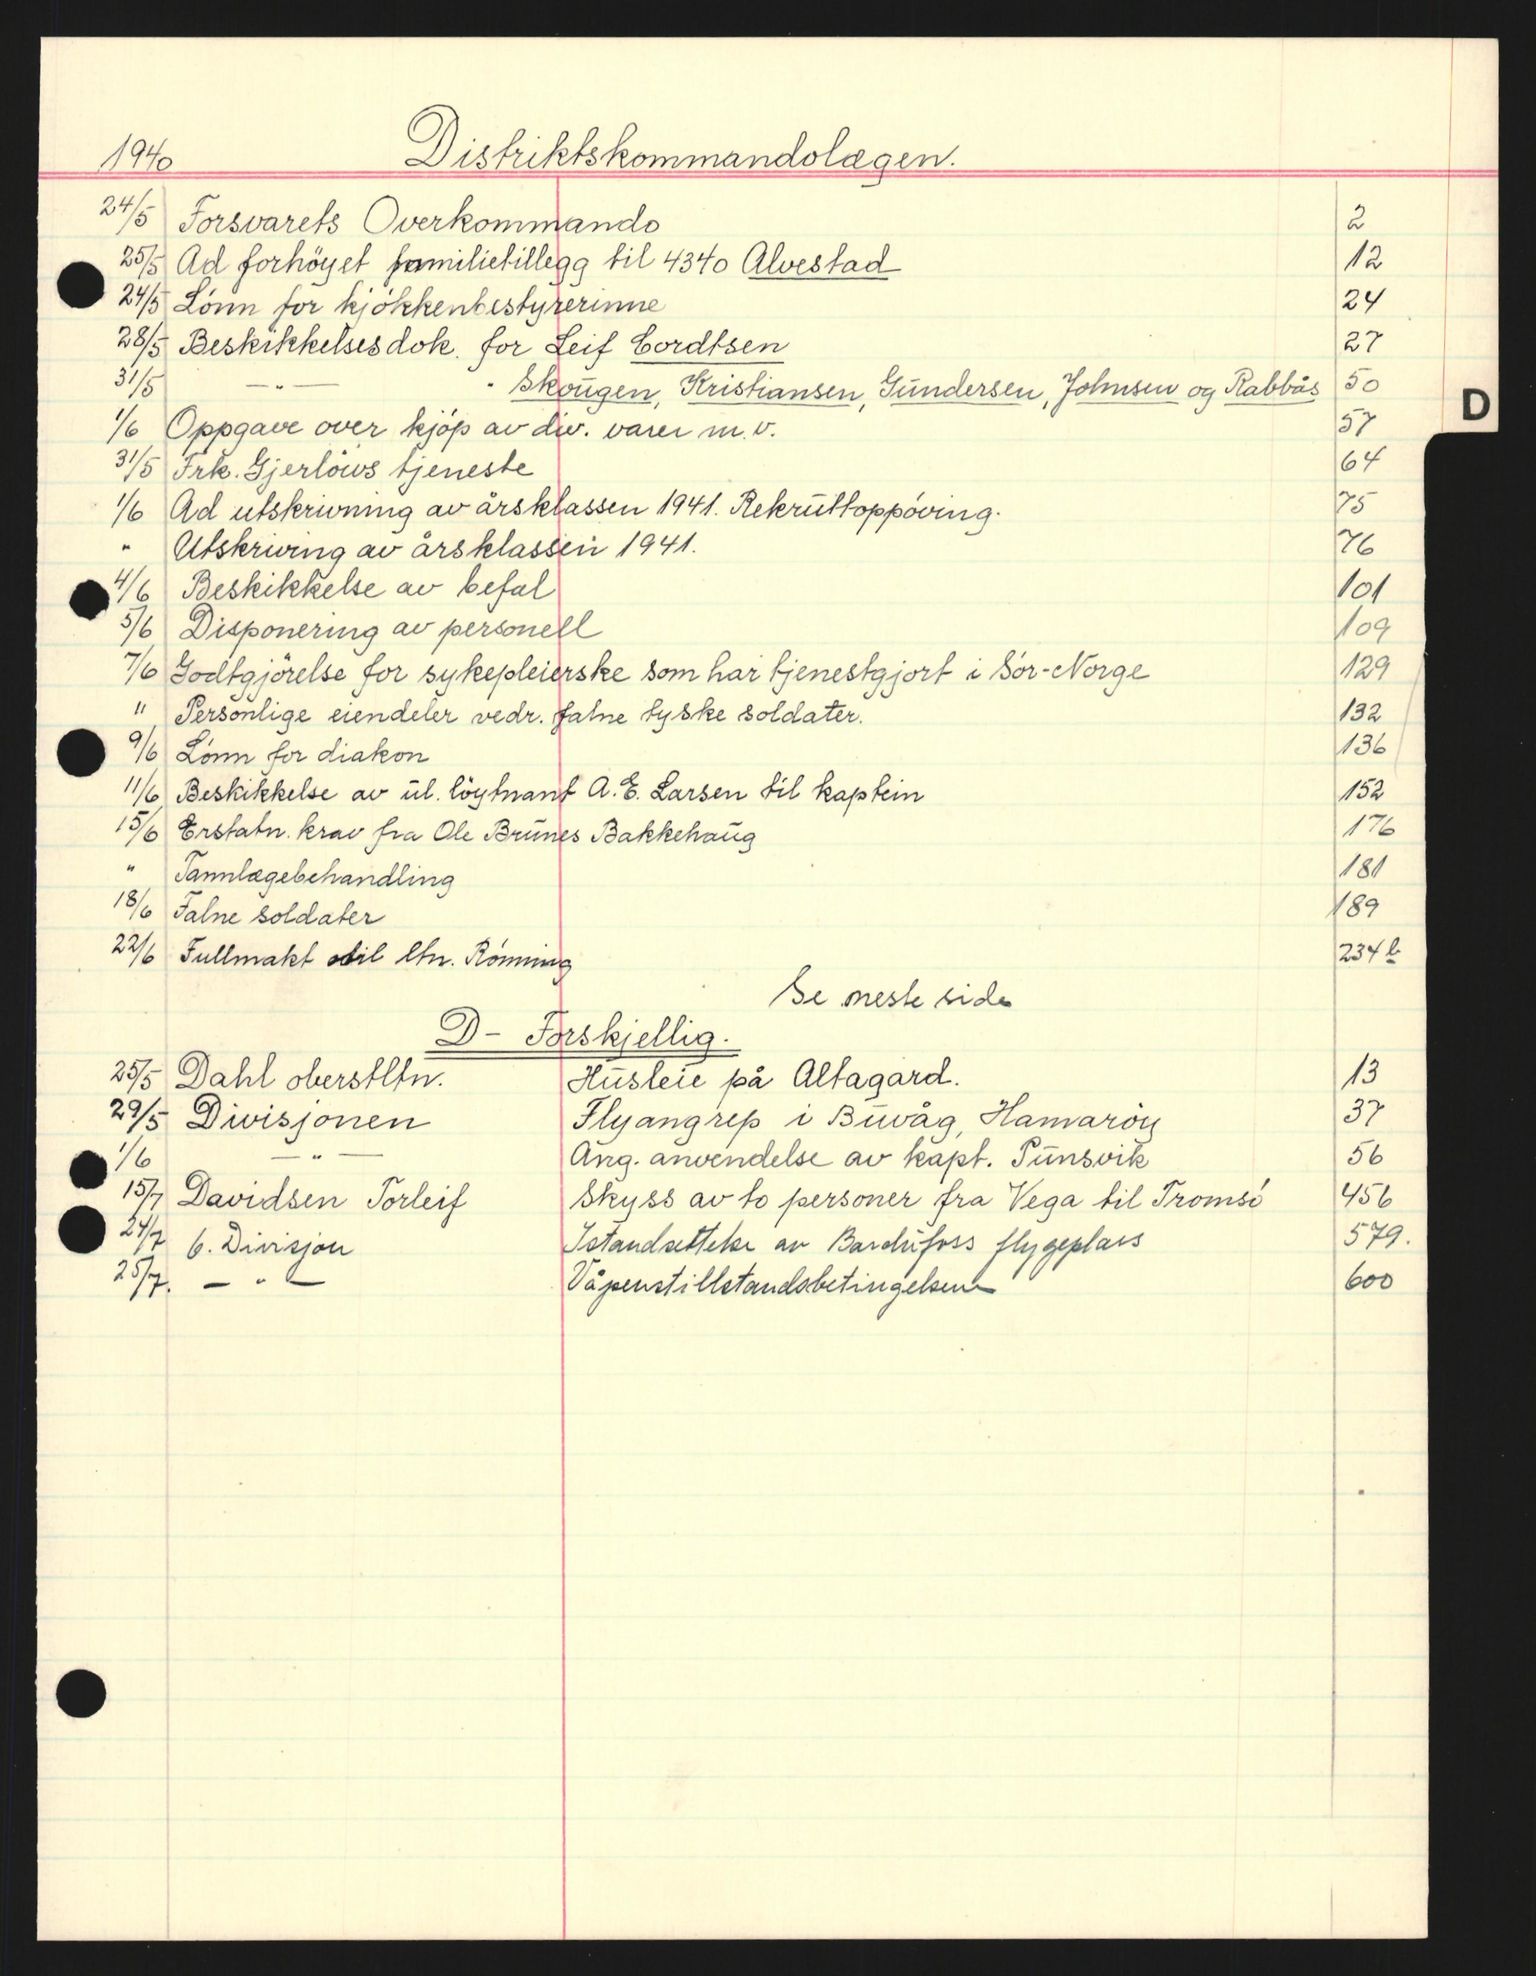 1940 Distriktskommandolægen.
24/5 Forsvarets Overkommando 2
25/5 Ad forhöyet familietillegg til 4340 Alvestad 12
24/5 Lönn for kjökkenbestyrerinne 24
28/5 Beskikkelsesdok. for Leif Cordtsen 27
31/5 —"— " Skougen, Kristiansen, Gundersen, Johnsen og Rabbås 50
D
1/6 Oppgave over kjöp av div. varer m.v. 57
31/5 Frk. Gjerlöws tjeneste 64
1/6 Ad utskrivning av årsklassen 1941. Rekruttoppöving. 75
" Utskriving av årsklassen 1941. 76
4/6 Beskikkelse av befal 101
5/6 Disponering av personell 109
7/6 Godtgjörelse for sykepleierske som har tjenestgjort i Sör-Norge 129
" Personlige eiendeler vedr. falne tyske soldater. 132
9/6 Lönn for diakon 136
11/6 Beskikkelse av ul. löytnant A.E. Larsen til kaptein 152
15/6 Erstatn. krav fra Ole Brunes Bakkehaug 176
" Tannlægebehandling 181
18/6 Falne soldater 189
22/6 Fullmakt til ltn. Rönning 234 b
Se neste side
D – Forskjellig.
25/5 Dahl oberstltn. Husleie på Altagard. 13
29/5 Divisjonen Flyangrep i Buvåg, Hamaröy 37
1/6 —"— Ang. anvendelse av kapt. Punsvik 56
15/7 Davidsen Torleif Skyss av to personer fra Vega til Tromsö 456
24/7 6. Divisjon Istandsettelse av Bardufoss flygeplass 579.
25/7. —"— Våpenstillstandsbetingelsene 600